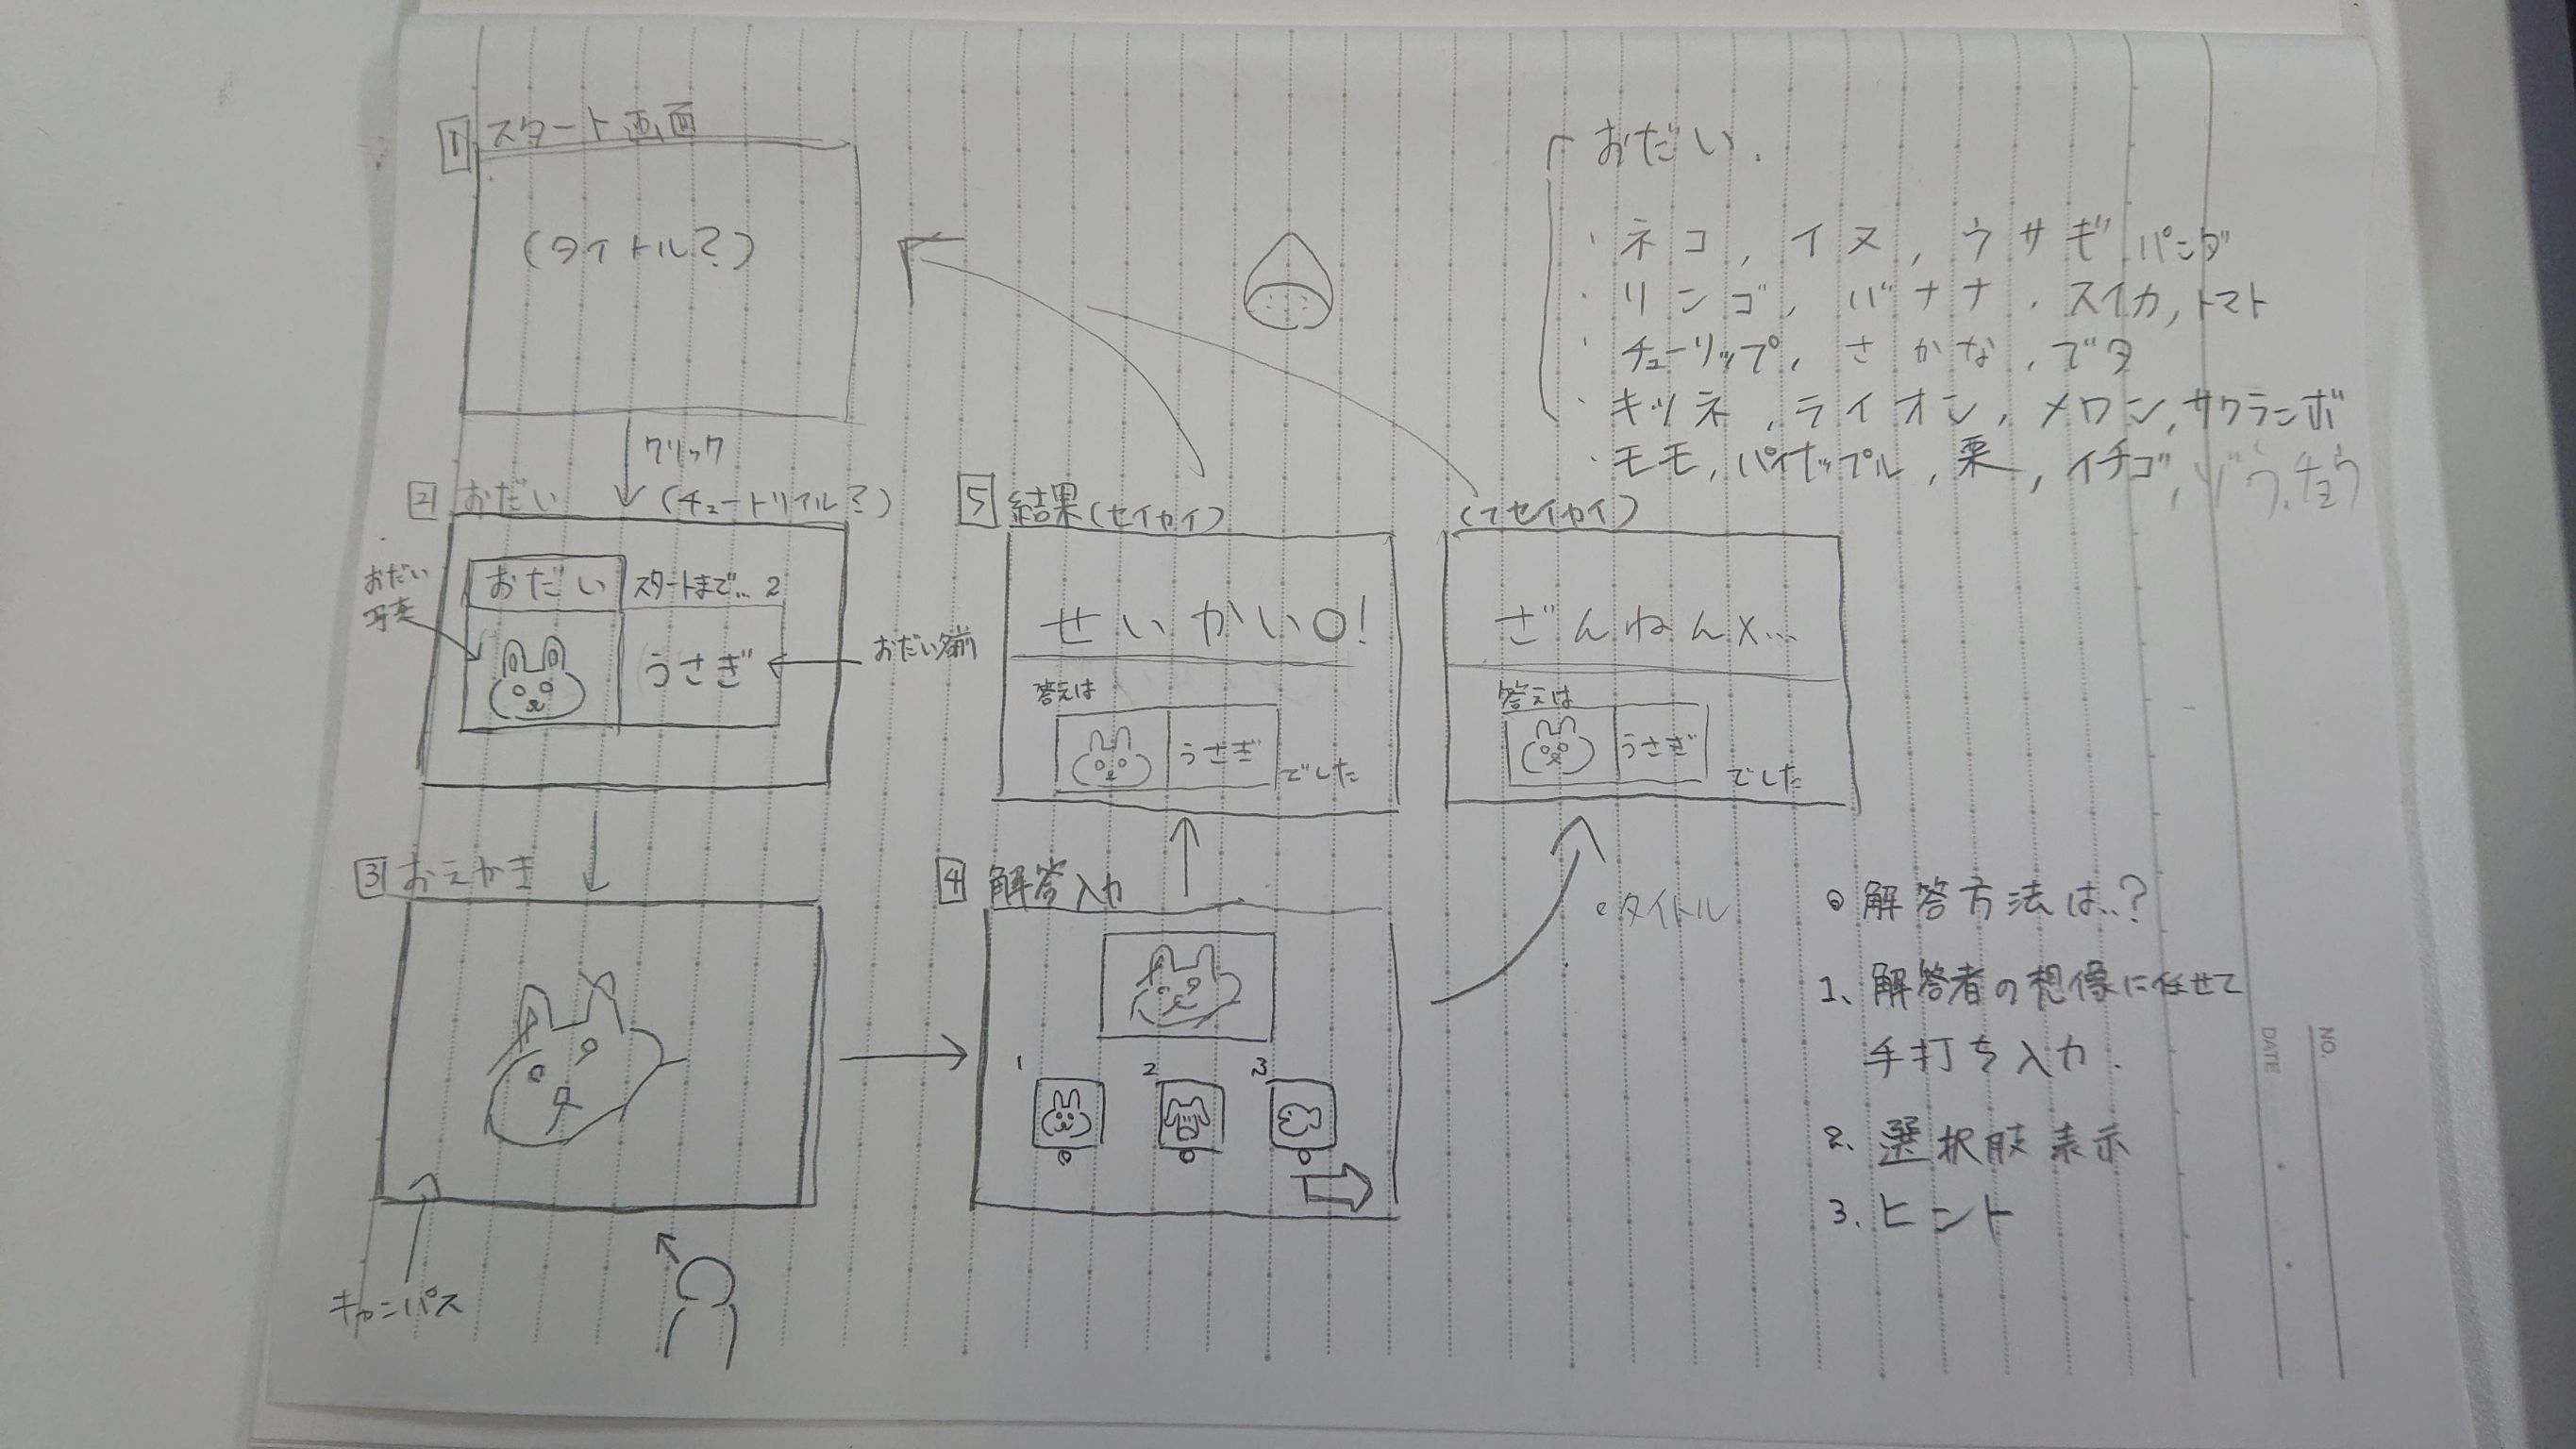 1 スタート画面
(タイトル?)
クリック
(チュートリアル?)
2 おだい
おだい スタートまで… 2
おだい
写真
うさぎ
おだい名前
3 おえかき
キャンパス
4 解答入力
1 2 3
5 結果(セイカイ)
せいかい○!
答えは
うさぎ
でした
(フセイカイ)
ざんねん×…
答えは
うさぎ
でした
・タイトル
おだい.
・ネコ, イヌ, ウサギ パンダ
・リンゴ, バナナ, スイカ, トマト
・チューリップ, さかな,
・キツネ, ライオン, メロン, サクランボ
・モモ, パイナップル, 栗, イチゴ, ゾウ, チョウ
◎解答方法は..?
1、解答者の想像に任せて
手打ち入力.
2. 選択肢表示
3. ヒント
NO.
DATE